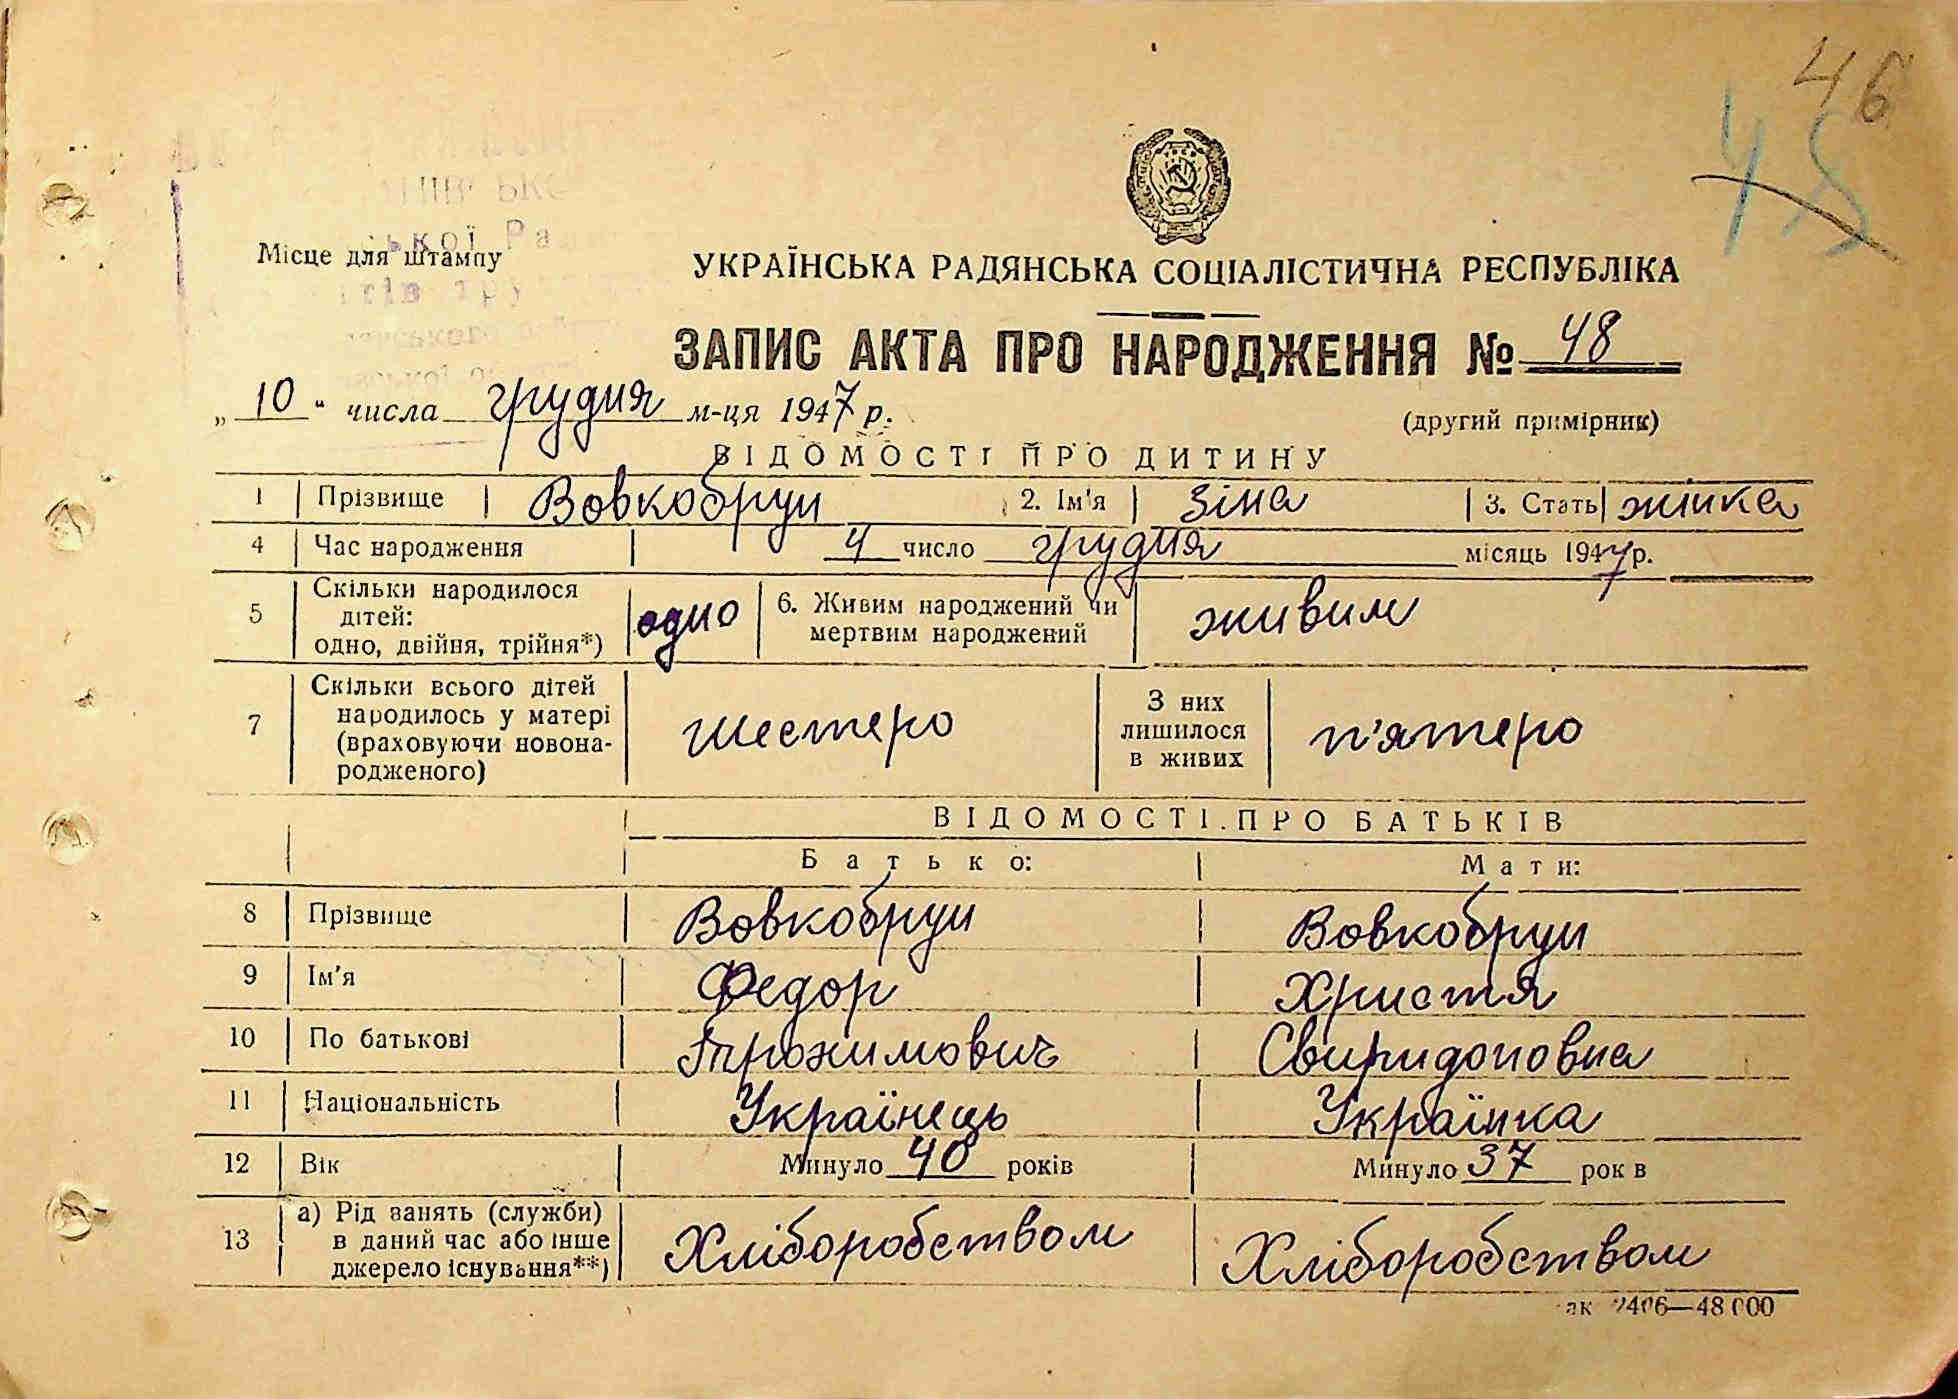 46
45
Місце для штампу
УКРАЇНСЬКА РАДЯНСЬКА СОЦІАЛІСТИЧНА РЕСПУБЛІКА
ЗАПИС АКТА ПРО НАРОДЖЕННЯ № 48
„ 10 “ числа грудня м-ця 1947 р.
(другий примірник)
ВІДОМОСТІ ПРО ДИТИНУ
1 Прізвище Вовкобрун 2. Ім'я Зіна 3. Стать жінка
4 Час народження 4 число грудня місяць 1947 р.
5 Скільки народилося дітей: одно, двійня, трійня*) одно 6. Живим народжений чи мертвим народжений живим
7 Скільки всього дітей народилось у матері (враховуючи новонародженого) шестеро З них лишилося в живих п'ятеро
ВІДОМОСТІ ПРО БАТЬКІВ
Батько: Мати:
8 Прізвище Вовкобрун Вовкобрун
9 Ім'я Федор Христя
10 По батькові Трохимович Свиридоновна
11 Національність Українець Українка
12 Вік Минуло 40 років Минуло 37 рок в
13 а) Рід занять (служби) в даний час або інше джерело існування**) Хліборобством Хліборобством
48 000